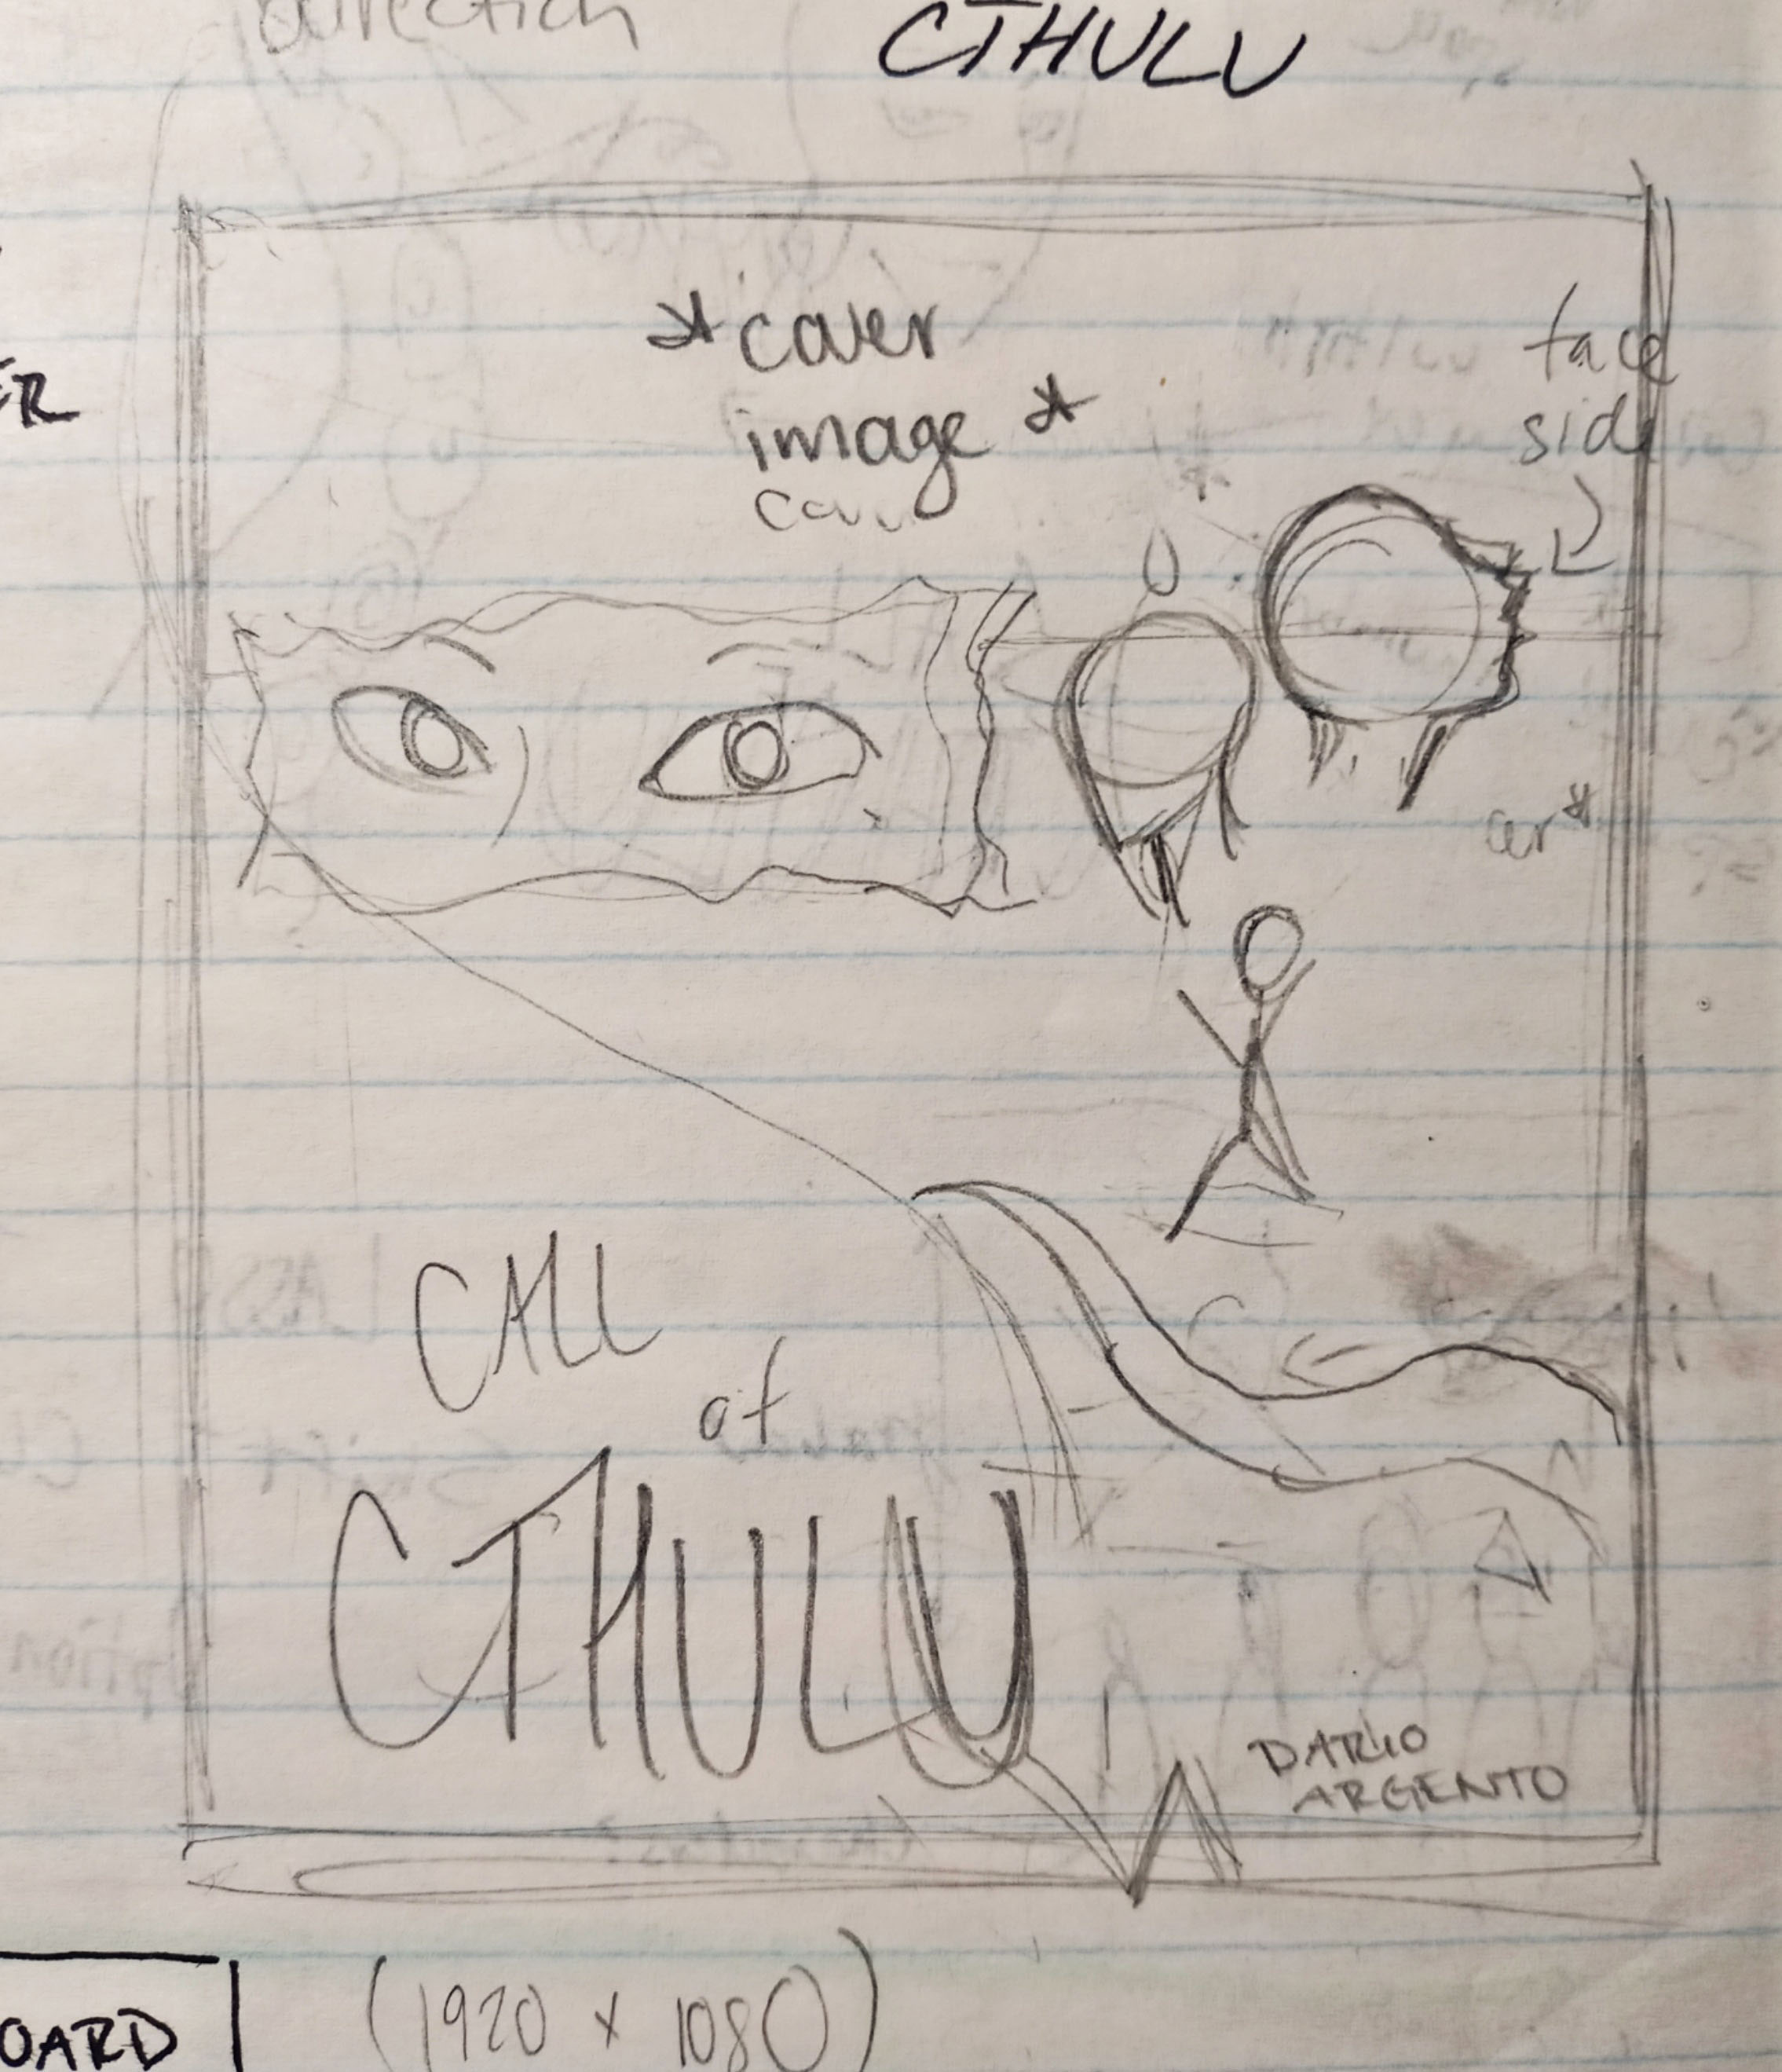 Direction
CTHULU
ER
*cover
image*
face
side
CALL
of
CTHULU
DARIO
ARGENTO
OARD
(1920 x 1080)